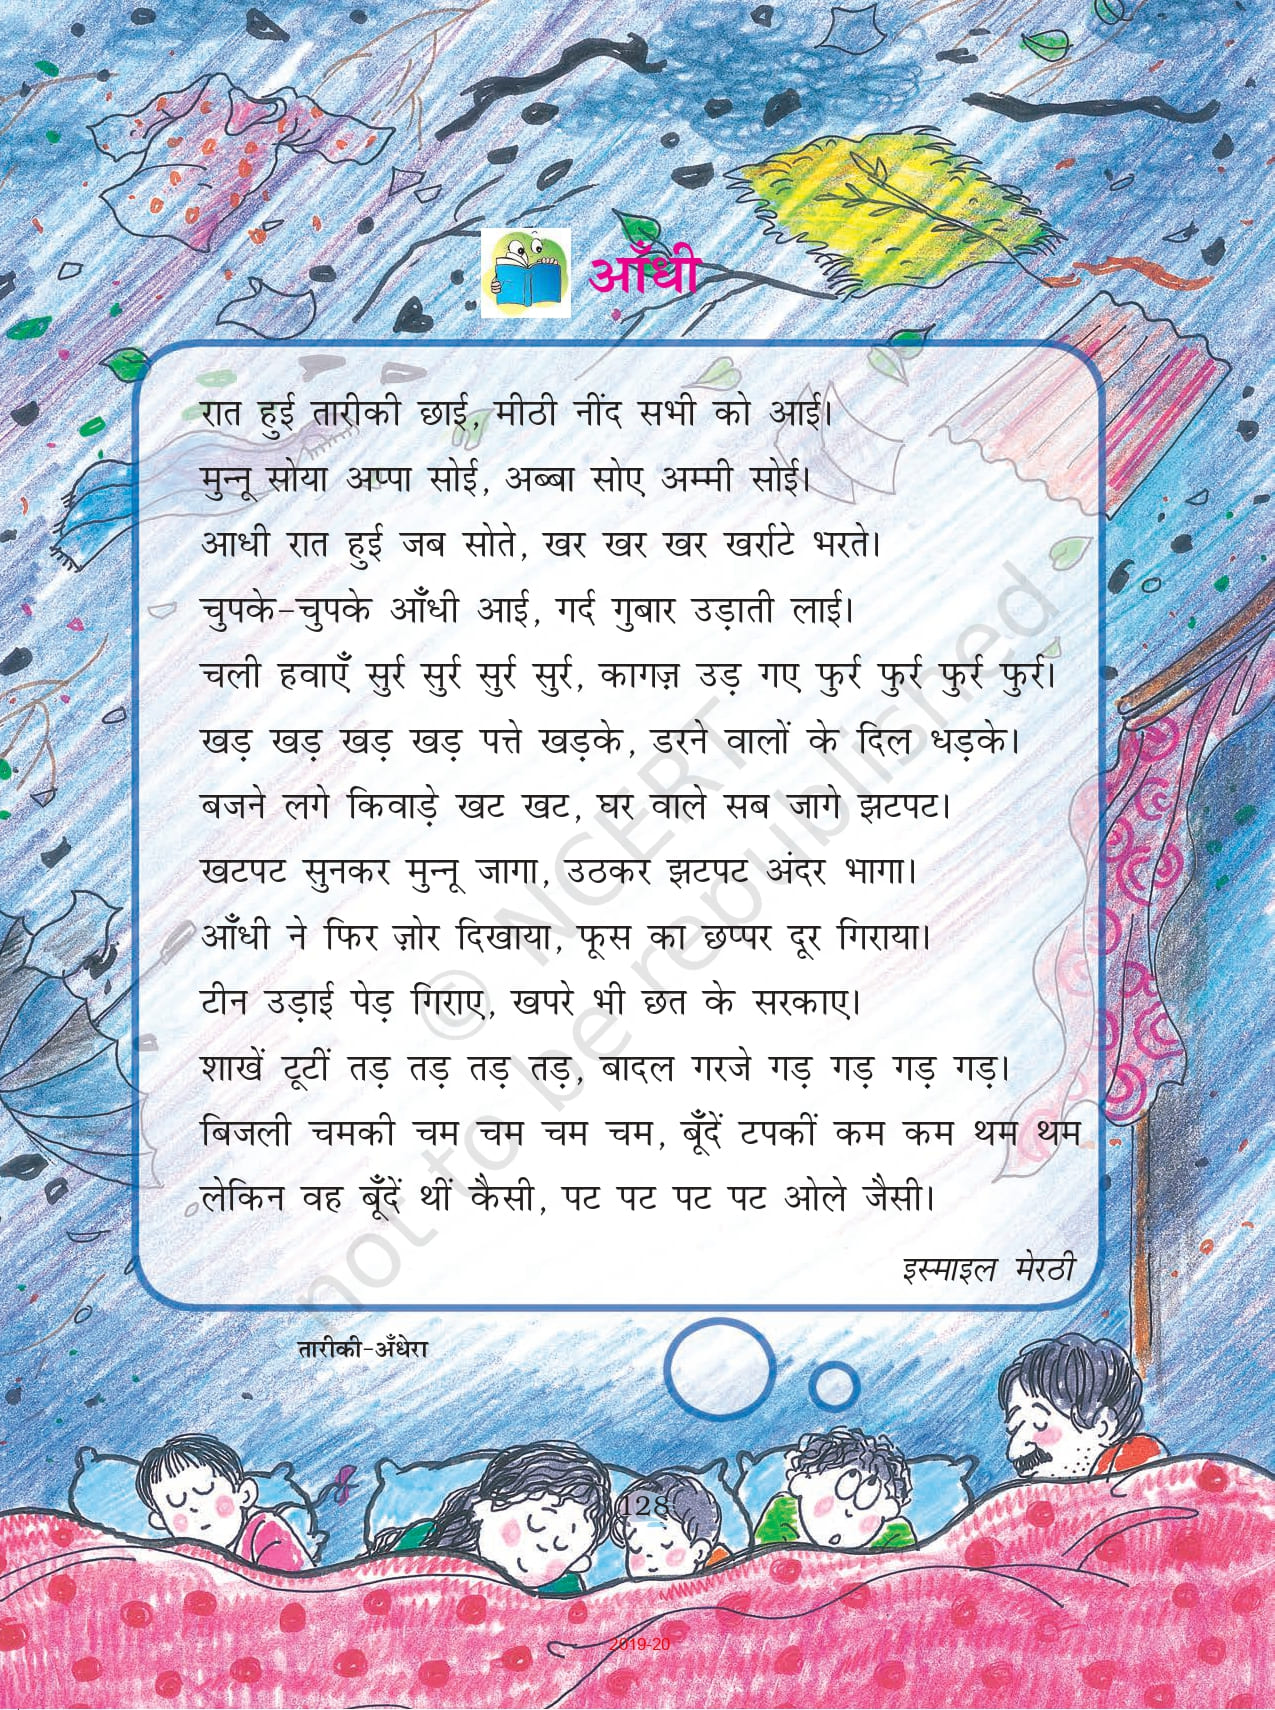 आँधी
रात हुई तारीकी छाई, मीठी नींद सभी को आई।
मुन्नू सोया अप्पा सोई, अब्बा सोए अम्मी सोई।
आधी रात हुई जब सोते, खर खर खर खर्राटे भरते।
चुपके-चुपके आँधी आई, गर्द गुबार उड़ाती लाई।
चली हवाएँ सुर्र सुर्र सुर्र सुर्र, कागज़ उड़ गए फुर्र फुर्र फुर्र फुर्र।
खड़ खड़ खड़ खड़ पत्ते खड़के, डरने वालों के दिल धड़के।
बजने लगे किवाड़े खट खट, घर वाले सब जागे झटपट।
खटपट सुनकर मुन्नू जागा, उठकर झटपट अंदर भागा।
आँधी ने फिर ज़ोर दिखाया, फूस का छप्पर दूर गिराया।
टीन उड़ाई पेड़ गिराए, खपरे भी छत के सरकाए।
शाखें टूटीं तड़ तड़ तड़ तड़, बादल गरजे गड़ गड़ गड़ गड़।
बिजली चमकी चम चम चम चम, बूँदें टपकीं कम कम थम थम
लेकिन वह बूँदें थीं कैसी, पट पट पट पट ओले जैसी।
इस्माइल मेरठी
© NCERT
not to be republished
तारीकी-अँधेरा
128
2019-20